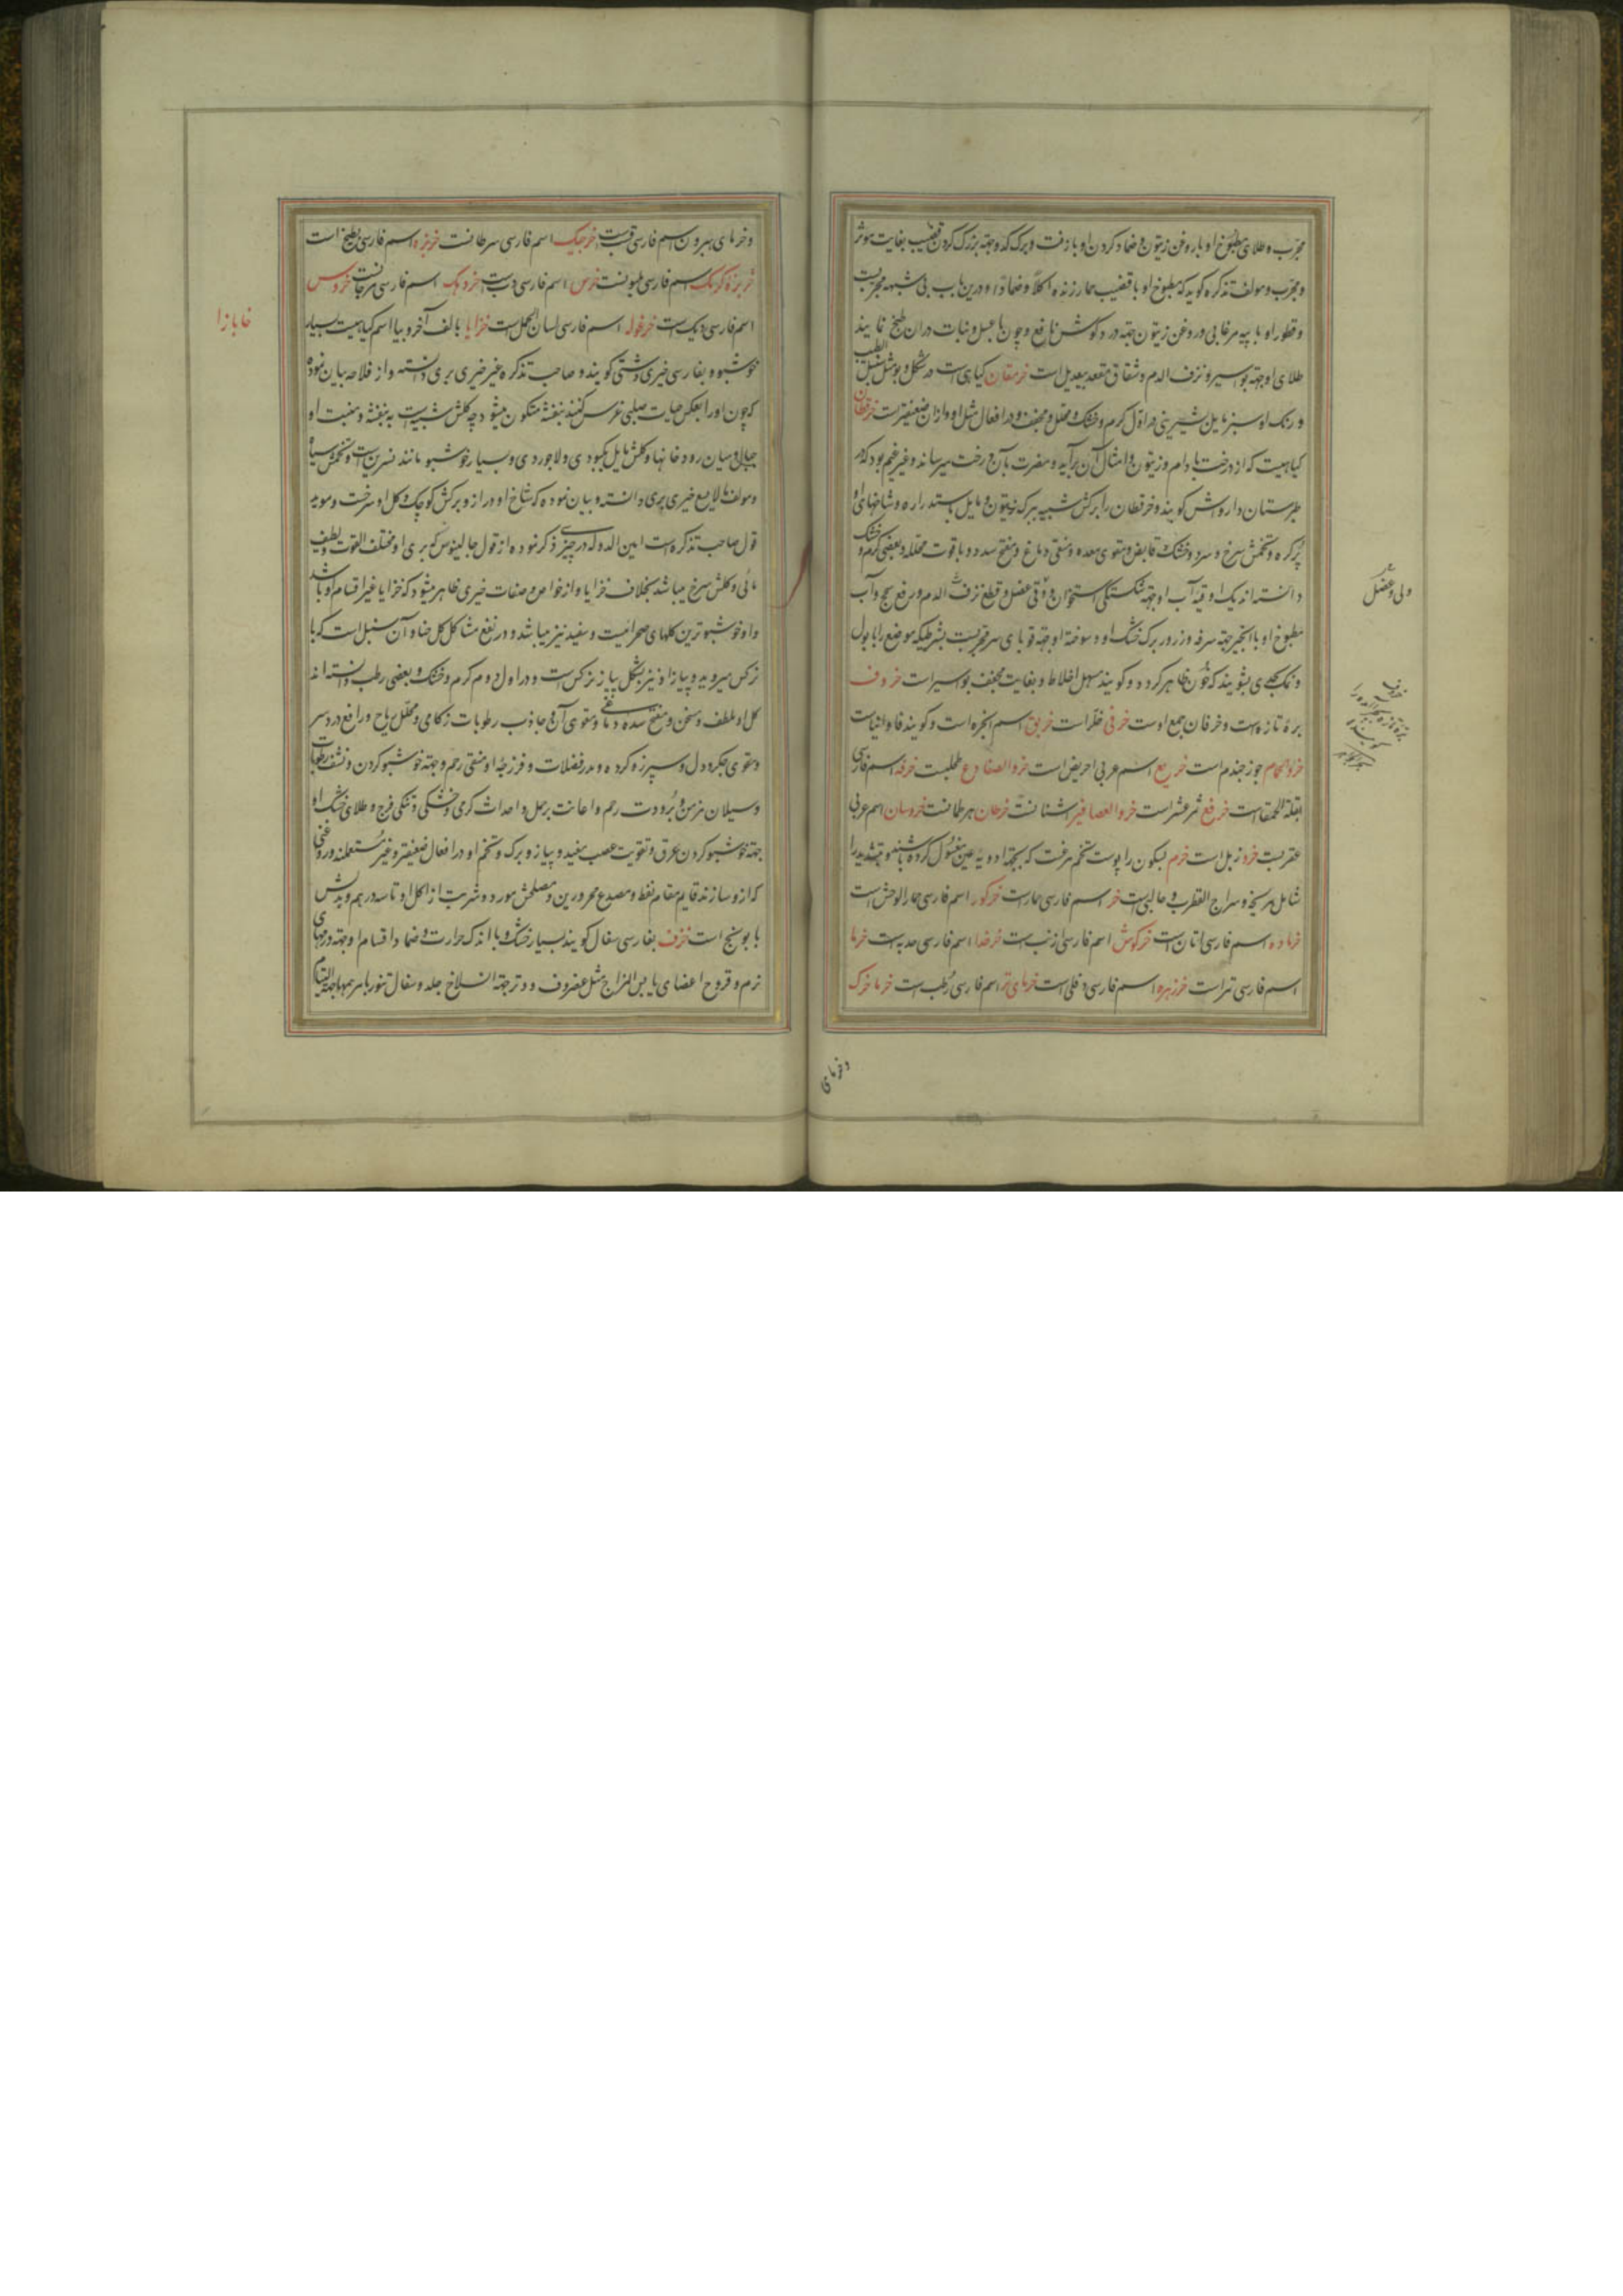 مجرب و طلای مطبوخ او با روغن زیتون و ضماد کردن او با زفت و برک کدو جهة بزرک کردن قضیب بغایت موثر
و مجرب و مولف تذکره کوید که مطبوخ او با قضیب حمار زنده اکلا و ضمادا درین باب بی شبهه مجربست
و قطور او با پیه مرغابی و روغن زیتون جهة درد کوش نافع و چون با عسل و نبات دران طبخ نمایند
طلای او جهة بواسیر و نزف الدم و شقاق مقعد بیعدیل است خرمقان کیاهی است در شکل و بو مثل سنبل الطیب
و رنک او سبز مایل بشیرینی در اول کرم و خشک و محلل و مجفف و در افعال مثل او و ازان ضعیفتر است خرقطان
کیاهیست که از درخت بادام و زیتون و امثال آن برآید و مضرت بآن درخت میرساند و غیر غیم بود که در
طبرستان داروش کویند و خرقطان را برکش شبیه ببرک زیتون و مایل باستداره و شاخهای او
پرکره و تخمش سرخ و سرد و خشک و قابض و مقوی معده و منقی دماغ و مفتح سدد و با قوت محلله و بعضی کرم و خشک
دانسته اند یک اوقیه آب او جهة شکستکی استخوان و وثی عضل و قطع نزف الدم و رفع سحج و آب
مطبوخ او با انجیر جهة سرفه و زرور برک خشک او و سوخته او جهة قوبای سر مجربست بشرطیکه موضع را با بول
و نمک بحدی بشویند که خون ظاهر کردد و کویند مسهل اخلاط و بغایت مجفف بواسیر است خروف
بره تازه است و خرفان جمع اوست خرفی خلر است خریق اسم انجره است و کویند فاوانیاست
خروالحمام جوز جندم است خریع اسم عربی احریض است خروالضفادع طحلبست خرفه اسم فارسی
بقلة الحمقاست خرفع ثمر عشر است خروالعصافیر اشنانست خرطان هرطمانست خروسان اسم عربی
عقربست خرو زبل است خرم بسکون را پوست تخم مرغست که بجهة ادویه عین مغسول کرده باشند و بتشدید را
شامل مریخه و سراج القطرب و حالبی است خر اسم فارسی حمارست خرکور اسم فارسی حمار الوحش است
خرماده اسم فارسی اتان است خرکوش اسم فارسی ارنب است خرخدا اسم فارسی هدبه است خرما
اسم فارسی تمر است خرزهره اسم فارسی دفلی است خرمای تر اسم فارسی رطب است خرما خرک
و خرمای
ولی و عضل
خروف
و خرمای بیرون اسم فارسی قسب است خرچنک اسم فارسی سرطانست خربزه اسم فارسی بطیخ است
خربزه کرمک اسم فارسی ملبونست خرس اسم فارسی دب است خردهک اسم فارسی مرجانست خروس
اسم فارسی دیک است خرغوله اسم فارسی لسان الحمل است خزایا بالف آخر و بیا اسم کیاهیست بسیار
خزایا را
خوشبو و بفارسی خیری دشتی کویند و صاحب تذکره غیر خیری بری دانسته و از فلاحه بیان نموده
که چون او را بعکس حیات صلبی غرس کنند بنفشه متکون میشود چه کلش شبیه است به بنفشه و منبت او
جبال و میان رودخانها و کلش مایل بکبودی و لاجوردی و بسیار خوشبو مانند نسرین است و تخمش سیاه
و مولف مالایسع خیری بری دانسته و بیان نموده که شاخ او دراز و برکش کوچک و کل او سرخست و موید
قول صاحب تذکره است امین الدوله که در چیزی ذکر نموده از قول جالینوس که بری او مختلف القوت و لطیف
مائی و کلش سرخ میباشد بخلاف خزایا و از خواص و صفات خیری ظاهر میشود که خزایا غیر اقسام او باشد
و او خوشبوترین کلهای صحرائیست و سفید نیز میباشد و در نفع مشاکل کل حنا و آن سنبل است که با
نرکس میروید و پیاز او نیز بشکل پیاز نرکس است و در اول دوم کرم و خشک و بعضی رطب دانسته اند
کل او ملطف و مسخن و مفتح سده دماغی و مقوی آن و جاذب رطوبات زکامی و محلل ریاح و رافع درد سر
و مقوی جکر و دل و سپرز و کرده و مدر فضلات و فرزجه او منقی رحم و جهة خوشبو کردن و نشف رطوبات
و سیلان مزمن و برودت رحم و اعانت بر حمل و احداث کرمی و خشکی و تنکی فرج و طلای خشک او
جهة خوشبو کردن عرق و تقویت عصب مفید و پیاز و برک و تخم او در افعال ضعیفتر و غیر مستعملند و روغنی
که از او سازند قایم مقام نفط و مصدع محرورین و مصلحش مورد و شربت از کل او تا سه درهم و بدلش
بابونج است خزف بفارسی سفال کویند بسیار خشک و با اندک حرارت و ضماد اقسام او جهة ورمهای
نرم و قروح اعضای یابس المزاج مثل غضروف و وتر جهة انسلاخ جلد و سفال تنور با مرهمها جهة التیام